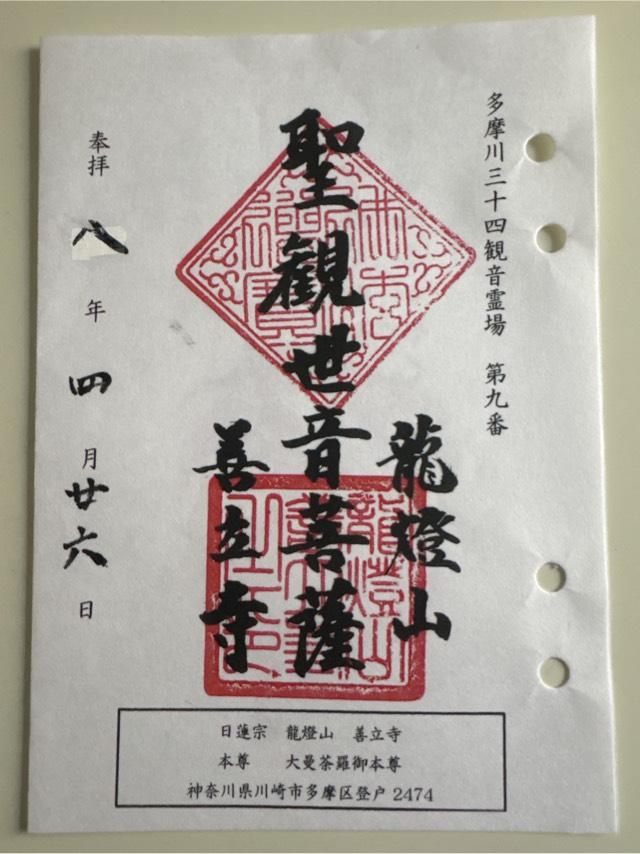 多摩川三十四観音霊場 第九番
龍燈山
聖観世音菩薩
善立寺
奉拝 八年 四月廿六日
日蓮宗 龍燈山 善立寺
本尊 大曼荼羅御本尊
神奈川県川崎市多摩区登戸 2474